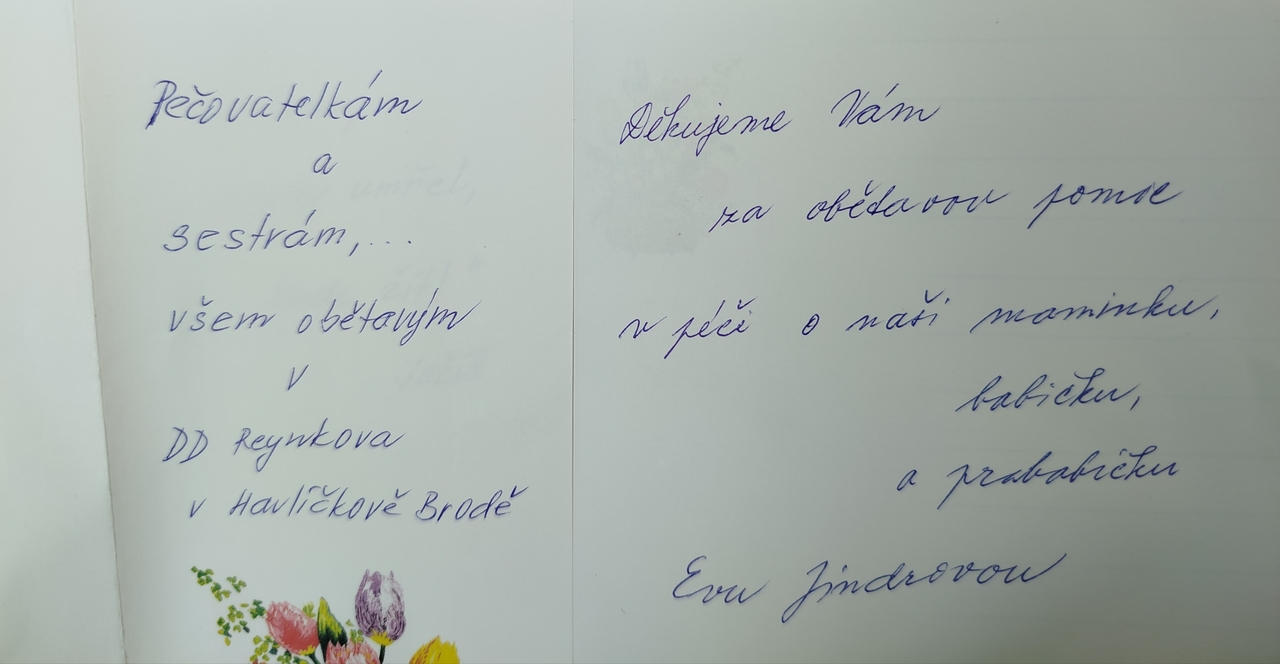 Pečovatelkám
a
sestrám,...
všem obětavým
v
DD Reynkova
v Havlíčkově Brodě
Děkujeme Vám
za obětavou pomoc
v péči o naši maminku,
babičku,
a prababičku
Evu Jindrovou